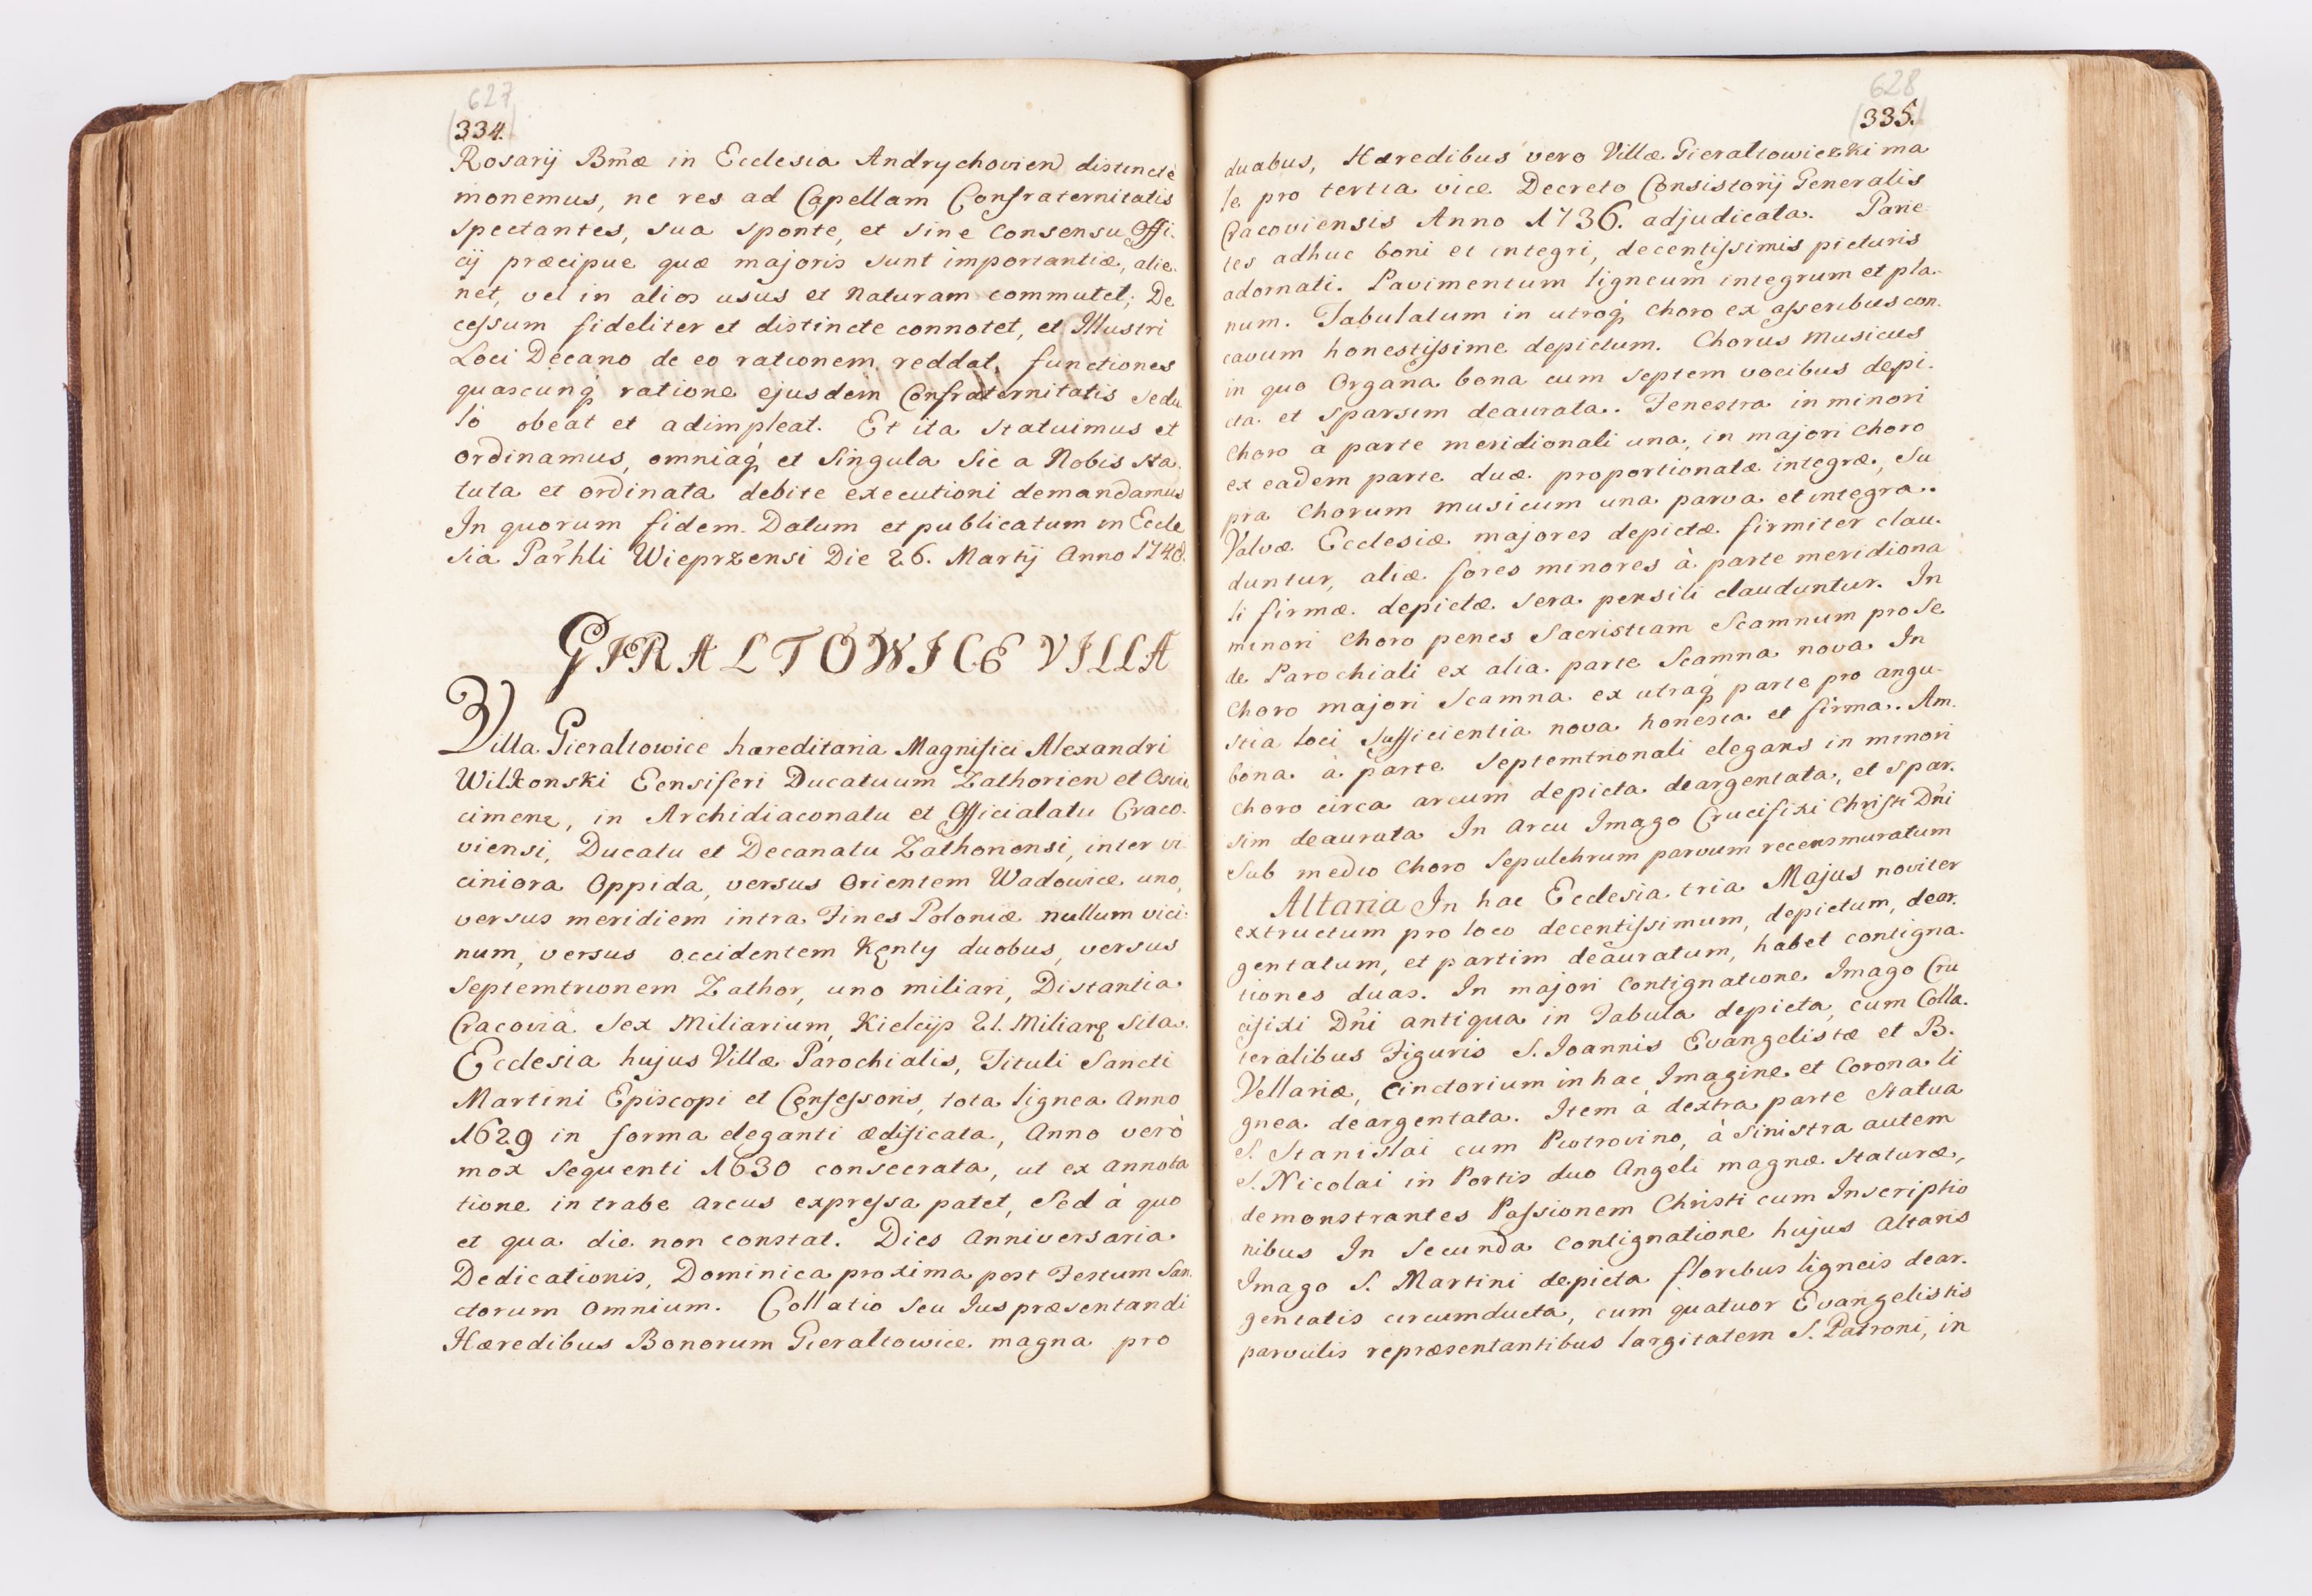 627
334.
Rosarij Bm̃æ in Ecclesia Andrychovien distincte
monemus, ne res ad Capellam Confraternitatis
spectantes, sua sponte, et sine consensu Offi-
cij præcipue quæ majoris sunt importantiæ, alie-
net, vel in alios usus et Naturam commutet; De
cessum fideliter et distincte connotet, et Illustri
Loci Decano de eo rationem reddat, functiones
quascunq́ ratione ejusdem Confraternitatis sedu
lò obeat et adimpleat. Et ita statuimus et
ordinamus, omniaq́ et singula sic a Nobis sta-
tuta et ordinata debite executioni demandamus
In quorum fidem. Datum et publicatum in Eccle
sia Par̃hli Wieprzensi Die 26. Martij Anno 1748.
GIRALTOWICE VILLA
Villa Gieraltowice hæreditaria Magnifici Alexandri
Wilkonski Ensiferi Ducatuum Zathorien et Oswie
cimenẽ, in Archidiaconatu et Officialatu Craco-
viensi, Ducatu et Decanatu Zathoriensi, inter vi-
ciniora Oppida, versus Orientem Wadowice uno,
versus meridiem intra Fines Poloniæ nullum vici-
num, versus occidentem Kenty duobus, versus
Septemtrionem Zathor, uno miliari, Distantia
Cracovià sex Miliarium, Kielcijs 21. Miliarẽ sita.
Ecclesia hujus Villæ Parochialis, Tituli Sancti
Martini Episcopi et Confessoris, tota lignea Anno
1629 in forma eleganti ædificata, Anno verò
mox sequenti 1630 consecrata, ut ex annota
tione in trabe arcus expressa patet, Sed à quo
et qua die non constat. Dies Anniversaria
Dedicationis, Dominica proxima post Festum San-
ctorum Omnium. Collatio seu Jus præsentandi
Hæredibus Bonorum Gieraltowice magna pro
628
335.
duabus, Hæredibus vero Villæ Gieraltowiczki ma
le pro tertia vice Decreto Consistorij Generalis
Cracoviensis Anno 1736. adjudicata. Parie
tes adhuc boni et integri, decentissimis picturis
adornati. Pavimentum ligneum integrum et pla-
num. Tabulatum in utroq́ choro ex asseribus con-
cavum honestissime depictum. Chorus musicus
in quo Organa bona cum septem vocibus depi-
cta et sparsim deaurata. Fenestra in minori
Choro a parte meridionali una, in majori choro
ex eadem parte duæ proportionatæ integræ, su
pra Chorum musicum una parva et integra.
Valvæ Ecclesiæ majores depictæ firmiter clau-
duntur, aliæ fores minores à parte meridiona
li firmæ depictæ sera pensili clauduntur. In
minori Choro penes Sacristiam Scamnum pro Se
de Parochiali ex alia parte Scamna nova In
Choro majori Scamna ex utraq́ parte pro angu-
stia loci sufficientia nova honesta et firma. Am-
bona à parte Septemtrionali elegans in minori
choro circa arcum depicta deargentata, et spar-
sim deaurata In arcu Imago Crucifixi Christi Dñi
Sub medio Choro Sepulchrum parvum recens muratum
Altaria In hac Ecclesia tria Majus noviter
extructum pro loco decentissimum, depictum, dear-
gentatum, et partim deauratum, habet contigna-
tiones duas. In majori Contignatione Imago Cru
cifixi Dñi antiqua in Tabula depicta, cum Colla-
teralibus Figuris S. Joannis Evangelistæ et B.
Vellariæ, Cinctorium in hac Imagine et Corona li
gnea deargentata. Item à dextra parte Statua
S. Stanislai cum Piotrovino, à Sinistra autem
S. Nicolai in Portis duo Angeli magnæ Staturæ,
demonstrantes Passionem Christi cum Inscriptio
nibus In secunda Contignatione hujus Altaris
Imago S. Martini depicta floribus ligneis dear-
gentatis circumducta, cum quatuor Evangelistis
parvulis repræsentantibus largitatem S. Patroni, in